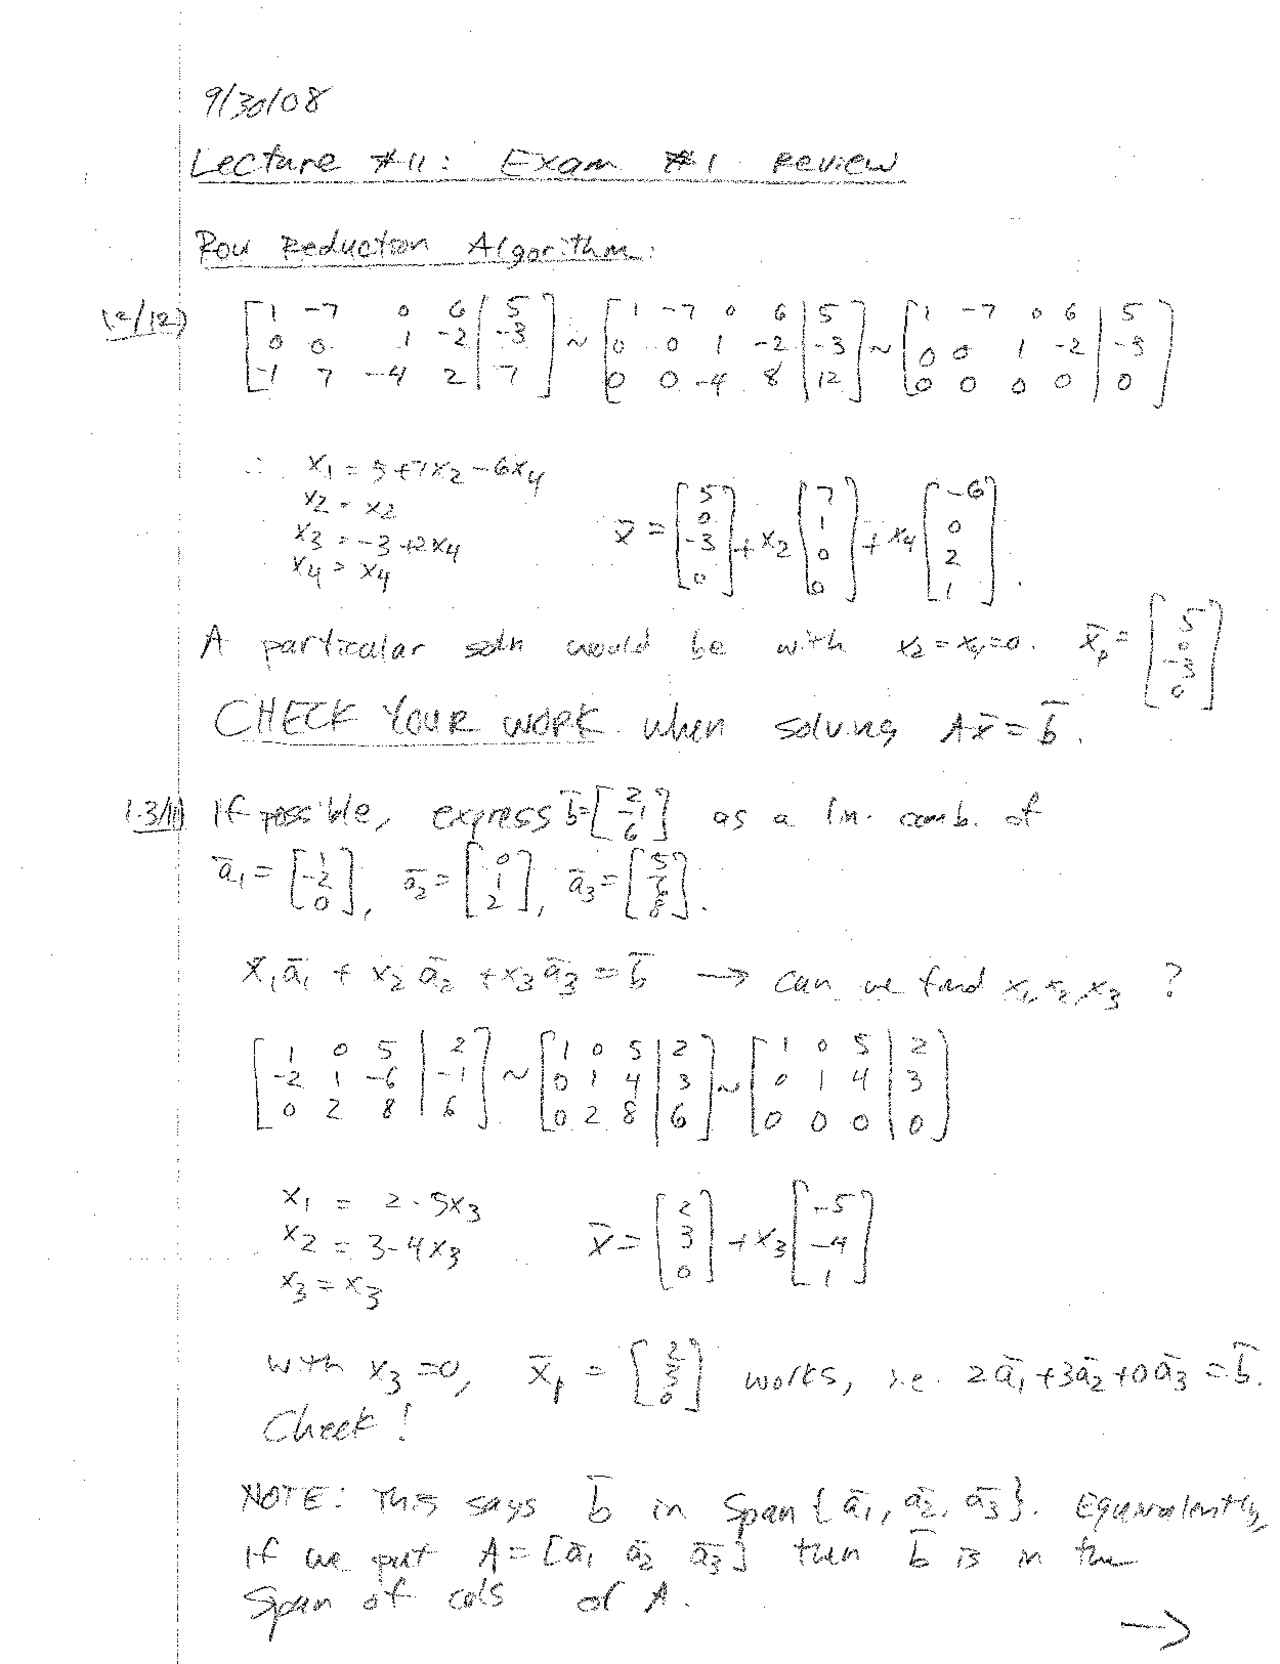 9/30/08
Lecture #11: Exam #1 Review
Row Reduction Algorithm:
1.2/12) [1 -7 0 6 | 5] ~ [1 -7 0 6 | 5] ~ [1 -7 0 6 | 5]
[0 0 1 -2 | -3] [0 0 1 -2 | -3] [0 0 1 -2 | -3]
[-1 7 -4 2 | 7] [0 0 -4 8 | 12] [0 0 0 0 | 0]
∴ x₁ = 5+7x₂-6x₄
x₂ = x₂
x₃ = -3+2x₄
x₄ = x₄
x̄ = [5 0 -3 0] + x₂ [7 1 0 0] + x₄ [-6 0 2 1].
A particular soln would be with x₂=x₄=0. x̄ₚ = [5 0 -3 0]
CHECK YOUR WORK when solving Ax̄ = b̄.
1.3/11) If possible, express b̄=[2 -1 6] as a lin. comb. of
ā₁ = [1 -2 0], ā₂ = [0 1 2], ā₃ = [5 -6 8].
x₁ā₁ + x₂ā₂ + x₃ā₃ = b̄ → can we find x₁,x₂,x₃ ?
[1 0 5 | 2] ~ [1 0 5 | 2] ~ [1 0 5 | 2]
[-2 1 -6 | -1] [0 1 4 | 3] [0 1 4 | 3]
[0 2 8 | 6] [0 2 8 | 6] [0 0 0 | 0]
x₁ = 2-5x₃
x₂ = 3-4x₃
x₃ = x₃
x̄ = [2 3 0] + x₃ [-5 -4 1]
with x₃=0, x̄ₚ = [2 3 0] works, i.e. 2ā₁+3ā₂+0ā₃ = b̄.
Check!
NOTE: This says b̄ in Span{ā₁, ā₂, ā₃}. Equivalently,
if we put A=[ā₁ ā₂ ā₃] then b̄ is in the
Span of cols of A.
→